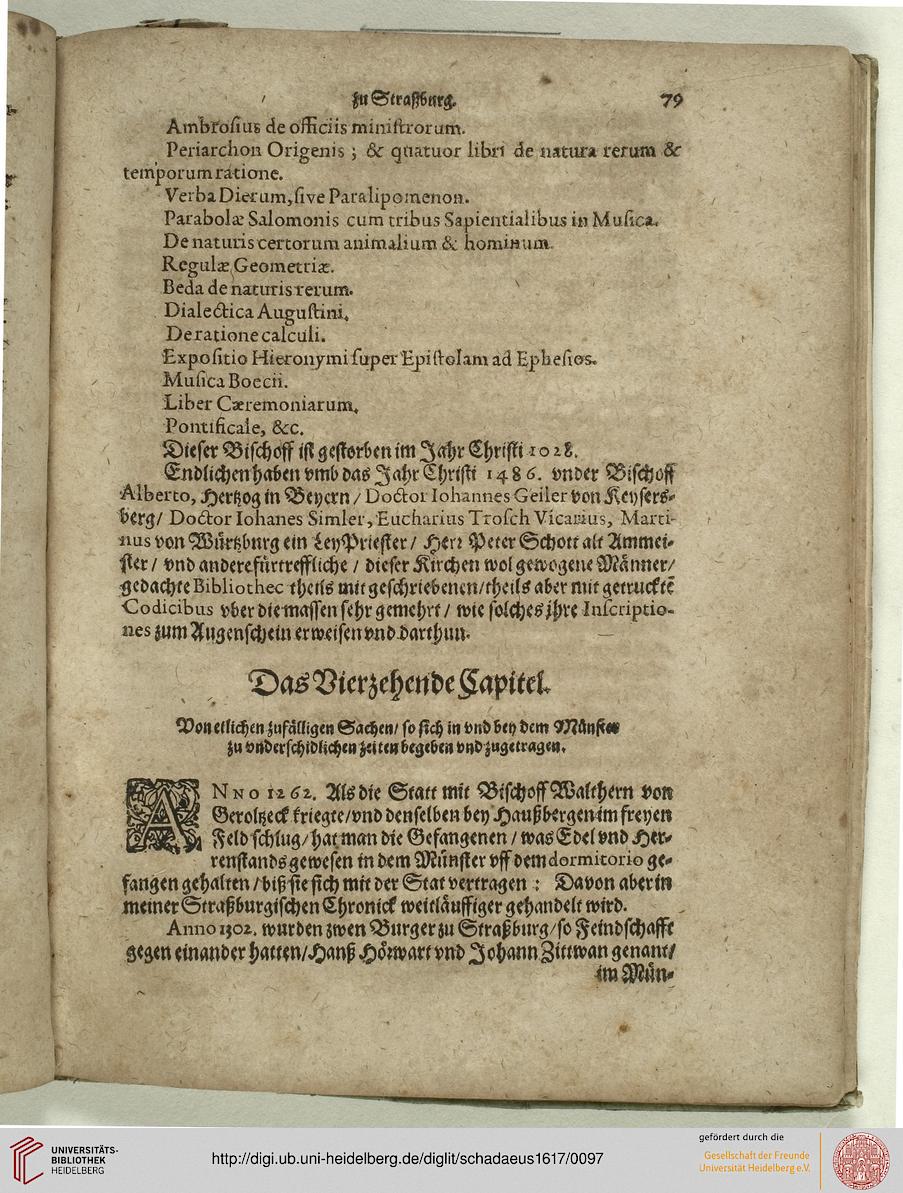 zu Straßburg. 79
Ambrosius de officiis ministrorum.
Periarchon Origenis ; & quatuor libri de natura rerum &
temporum ratione.
Verba Dierum, sive Paralipomenon.
Parabolæ Salomonis cum tribus Sapientialibus in Musica.
De naturis certorum animalium & hominum.
Regulæ Geometriæ.
Beda de naturis rerum.
Dialectica Augustini.
De ratione calculi.
Expositio Hieronymi super Epistolam ad Ephesios.
Musica Boecii.
Liber Cæremoniarum.
Pontificale, &c.
Dieser Bischoff ist gestorben im Jahr Christi 1028.
Endlichen haben vmb das Jahr Christi 1486. vnder Bischoff
Alberto, Hertzog in Beyern / Doctor Iohannes Geiler von Keysers-
berg / Doctor Iohanes Simler, Eucharius Trosch Vicarius, Marti-
nus von Würtzburg ein LeyPriester / Herr Peter Schott alt Ammei-
ster / vnd andere fürtreffliche / dieser Kirchen wol gewogene Männer /
gedachte Bibliothec theils mit geschriebenen / theils aber mit getrucktē
Codicibus vber die massen sehr gemehrt / wie solches jhre Inscriptio-
nes zum Augenschein erweisen vnd darthun.
Das Vierzehende Capitel.
Von etlichen zufälligen Sachen / so sich in vnd bey dem Münster
zu vnderschidlichen zeiten begeben vnd zugetragen.
ANNO 1262. Als die Statt mit Bischoff Walthern von
Geroltzeck kriegte / vnd denselben bey Haußbergen im freyen
Feld schlug / hat man die Gefangenen / was Edel vnd Her-
renstands gewesen in dem Münster vff dem dormitorio ge-
fangen gehalten / biß sie sich mit der Stat vertragen : Davon aber in
meiner Straßburgischen Chronick weitläuffiger gehandelt wird.
Anno 1302. wurden zwen Burger zu Straßburg / so Feindschafft
gegen einander hatten / Hanß Hörwart vnd Johann Zittwan genant /
im Mün-
UNIVERSITÄTS-
BIBLIOTHEK
HEIDELBERG
http://digi.ub.uni-heidelberg.de/diglit/schadaeus1617/0097
gefördert durch die
Gesellschaft der Freunde
Universität Heidelberg e.V.